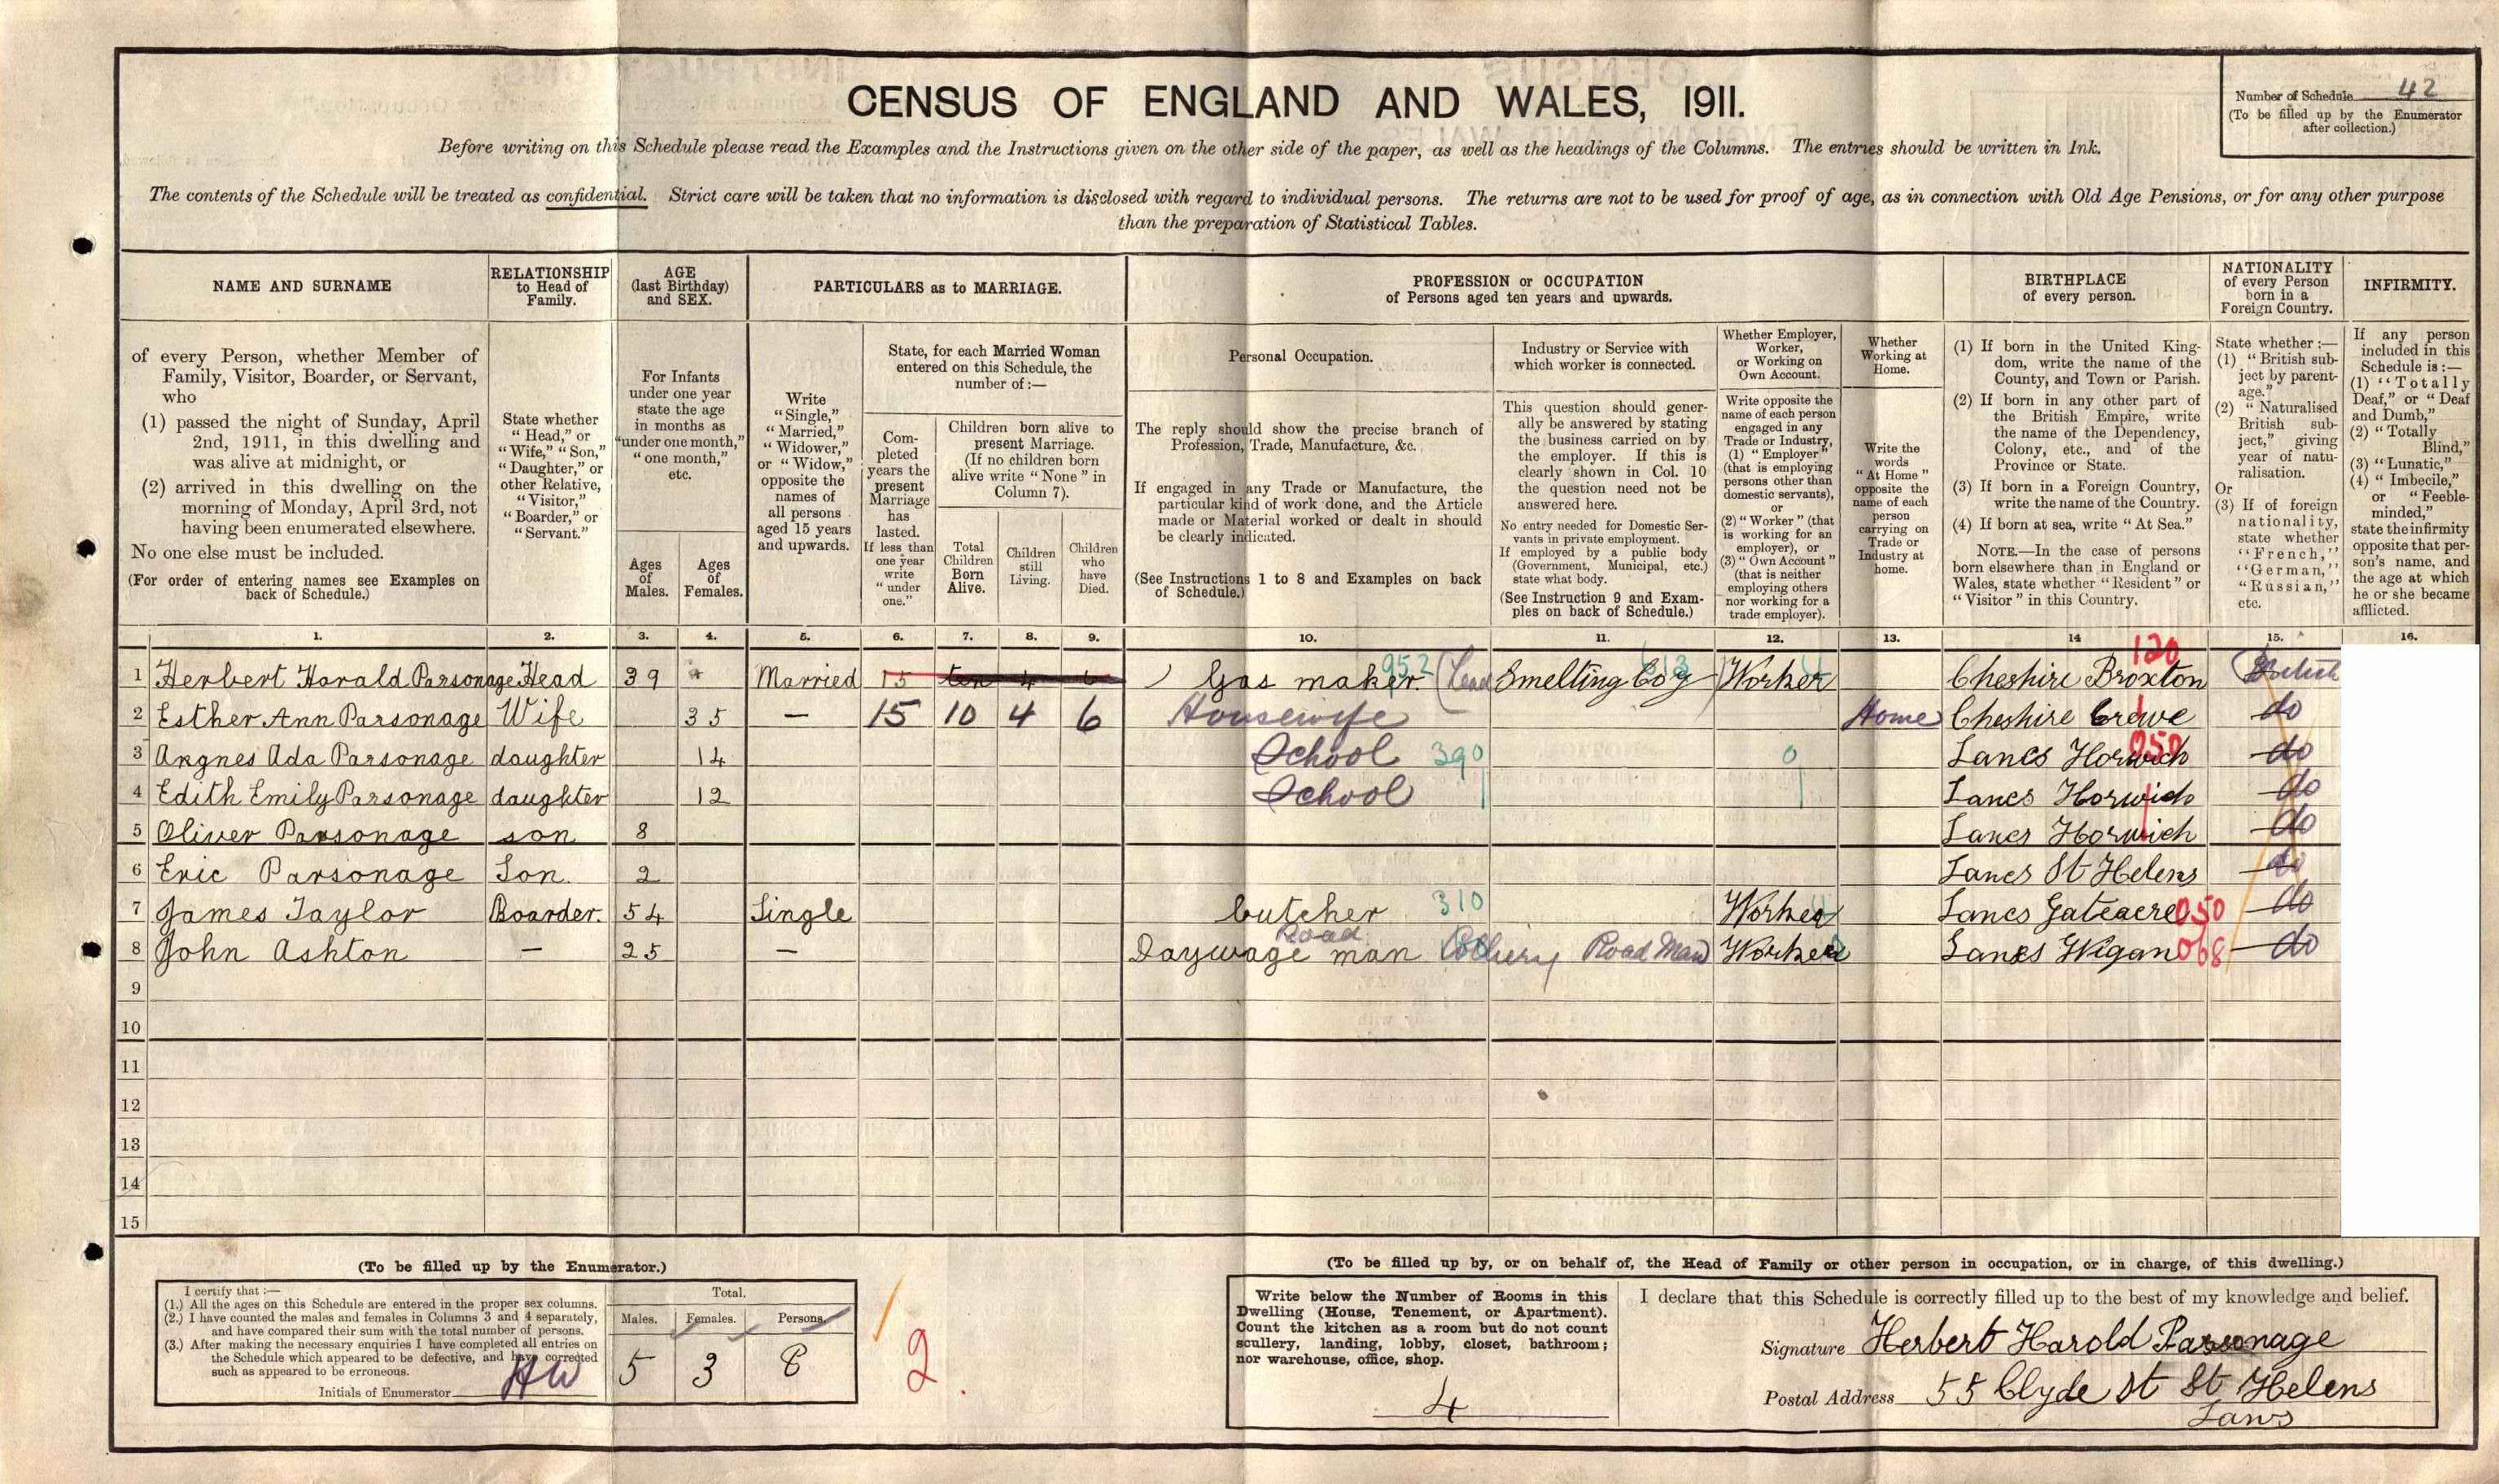 CENSUS OF ENGLAND AND WALES, 1911.
Number of Schedule 42
(To be filled up by the Enumerator
after collection.)
Before writing on this Schedule please read the Examples and the Instructions given on the other side of the paper, as well as the headings of the Columns. The entries should be written in Ink.
The contents of the Schedule will be treated as confidential. Strict care will be taken that no information is disclosed with regard to individual persons. The returns are not to be used for proof of age, as in connection with Old Age Pensions, or for any other purpose
than the preparation of Statistical Tables.
NAME AND SURNAME
of every Person, whether Member of
Family, Visitor, Boarder, or Servant,
who
(1) passed the night of Sunday, April
2nd, 1911, in this dwelling and
was alive at midnight, or
(2) arrived in this dwelling on the
morning of Monday, April 3rd, not
having been enumerated elsewhere.
No one else must be included.
(For order of entering names see Examples on
back of Schedule.)
RELATIONSHIP
to Head of
Family.
State whether
"Head," or
"Wife," "Son,"
"Daughter," or
other Relative,
"Visitor,"
"Boarder," or
"Servant."
AGE
(last Birthday)
and SEX.
For Infants
under one year
state the age
in months as
"under one month,"
"one month,"
etc.
Ages
of
Males.
Ages
of
Females.
PARTICULARS as to MARRIAGE.
Write
"Single,"
"Married,"
"Widower,"
or "Widow,"
opposite the
names of
all persons
aged 15 years
and upwards.
State, for each Married Woman
entered on this Schedule, the
number of:—
Com-
pleted
years the
present
Marriage
has
lasted.
If less than
one year
write
"under
one."
Children born alive to
present Marriage.
(If no children born
alive write "None" in
Column 7).
Total
Children
Born
Alive.
Children
still
Living.
Children
who
have
Died.
PROFESSION or OCCUPATION
of Persons aged ten years and upwards.
Personal Occupation.
The reply should show the precise branch of
Profession, Trade, Manufacture, &c.
If engaged in any Trade or Manufacture, the
particular kind of work done, and the Article
made or Material worked or dealt in should
be clearly indicated.
(See Instructions 1 to 8 and Examples on back
of Schedule.)
Industry or Service with
which worker is connected.
This question should gener-
ally be answered by stating
the business carried on by
the employer. If this is
clearly shown in Col. 10
the question need not be
answered here.
No entry needed for Domestic Ser-
vants in private employment.
If employed by a public body
(Government, Municipal, etc.)
state what body.
(See Instruction 9 and Exam-
ples on back of Schedule.)
Whether Employer,
Worker,
or Working on
Own Account.
Write opposite the
name of each person
engaged in any
Trade or Industry,
(1) "Employer"
(that is employing
persons other than
domestic servants),
or
(2) "Worker" (that
is working for an
employer), or
(3) "Own Account"
(that is neither
employing others
nor working for a
trade employer).
Whether
Working at
Home.
Write the
words
"At Home"
opposite the
name of each
person
carrying on
Trade or
Industry at
home.
BIRTHPLACE
of every person.
(1) If born in the United King-
dom, write the name of the
County, and Town or Parish.
(2) If born in any other part of
the British Empire, write
the name of the Dependency,
Colony, etc., and of the
Province or State.
(3) If born in a Foreign Country,
write the name of the Country.
(4) If born at sea, write "At Sea."
NOTE.—In the case of persons
born elsewhere than in England or
Wales, state whether "Resident" or
"Visitor" in this Country.
NATIONALITY
of every Person
born in a
Foreign Country.
State whether:—
(1) "British sub-
ject by parent-
age."
(2) "Naturalised
British sub-
ject," giving
year of natu-
ralisation.
Or
(3) If of foreign
nationality,
state whether
"French,"
"German,"
"Russian,"
etc.
INFIRMITY.
If any person
included in this
Schedule is:—
(1) "Totally
Deaf," or "Deaf
and Dumb,"
(2) "Totally
Blind,"
(3) "Lunatic,"
(4) "Imbecile,"
or "Feeble-
minded,"
state the infirmity
opposite that per-
son's name, and
the age at which
he or she became
afflicted.
1. 2. 3. 4. 5. 6. 7. 8. 9. 10. 11. 12. 13. 14 15. 16.
120
1 Herbert Harald Parsonage Head 39 Married 15 ten 4 6 Gas maker 952 (Lead Smelting Coy) 613 Worker Cheshire Broxton British
2 Esther Ann Parsonage Wife 35 — 15 10 4 6 Housewife Home Cheshire Crewe do
3 Angnes Ada Parsonage daughter 14 School 390 0 Lancs Horwich 050 do
4 Edith Emily Parsonage daughter 12 School Lancs Horwich do
5 Oliver Parsonage son 8 Lancs Horwich do
6 Eric Parsonage Son. 2 Lancs St Helens do
7 James Taylor Boarder. 54 Single butcher 310 Worker Lancs Gateacre 050 do
8 John Ashton — 25 — Daywage Road man Colliery Road Man Worker Lancs Wigan 068 do
9
10
11
12
13
14
15
(To be filled up by the Enumerator.)
I certify that:—
(1.) All the ages on this Schedule are entered in the proper sex columns.
(2.) I have counted the males and females in Columns 3 and 4 separately,
and have compared their sum with the total number of persons.
(3.) After making the necessary enquiries I have completed all entries on
the Schedule which appeared to be defective, and have corrected
such as appeared to be erroneous.
Initials of Enumerator HW
Total.
Males. Females. Persons.
5 3 8
2.
(To be filled up by, or on behalf of, the Head of Family or other person in occupation, or in charge, of this dwelling.)
Write below the Number of Rooms in this
Dwelling (House, Tenement, or Apartment).
Count the kitchen as a room but do not count
scullery, landing, lobby, closet, bathroom;
nor warehouse, office, shop.
4
I declare that this Schedule is correctly filled up to the best of my knowledge and belief.
Signature Herbert Harold Parsonage
Postal Address 55 Clyde St St Helens
Lancs